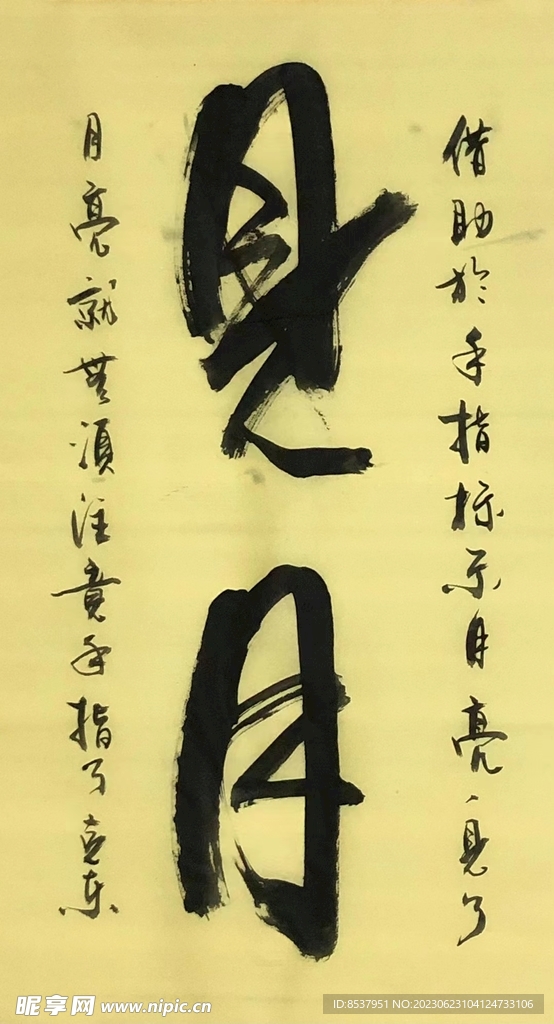 見月
借助於手指标示月亮見了
月亮就無須注意手指了
昵享网 www.nipic.cn
ID:8537951 NO:20230623104124733106